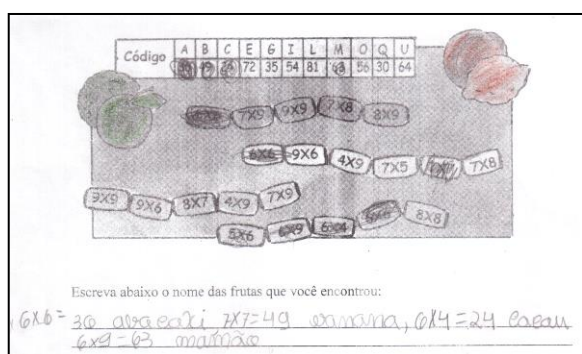 Código A B C E G I L M O Q U
72 35 54 81 63 56 30 64
7X9 9X9 7X8 8X9
6X6 9X6 4X9 7X5 7X8
9X9 9X6 8X7 4X9 7X9
5X6 6X9 6X4 8X8
Escreva abaixo o nome das frutas que você encontrou:
6X6=
36 abacaxi 7X7=49 banana, 6X4=24 cacau
6x9=63 mamão